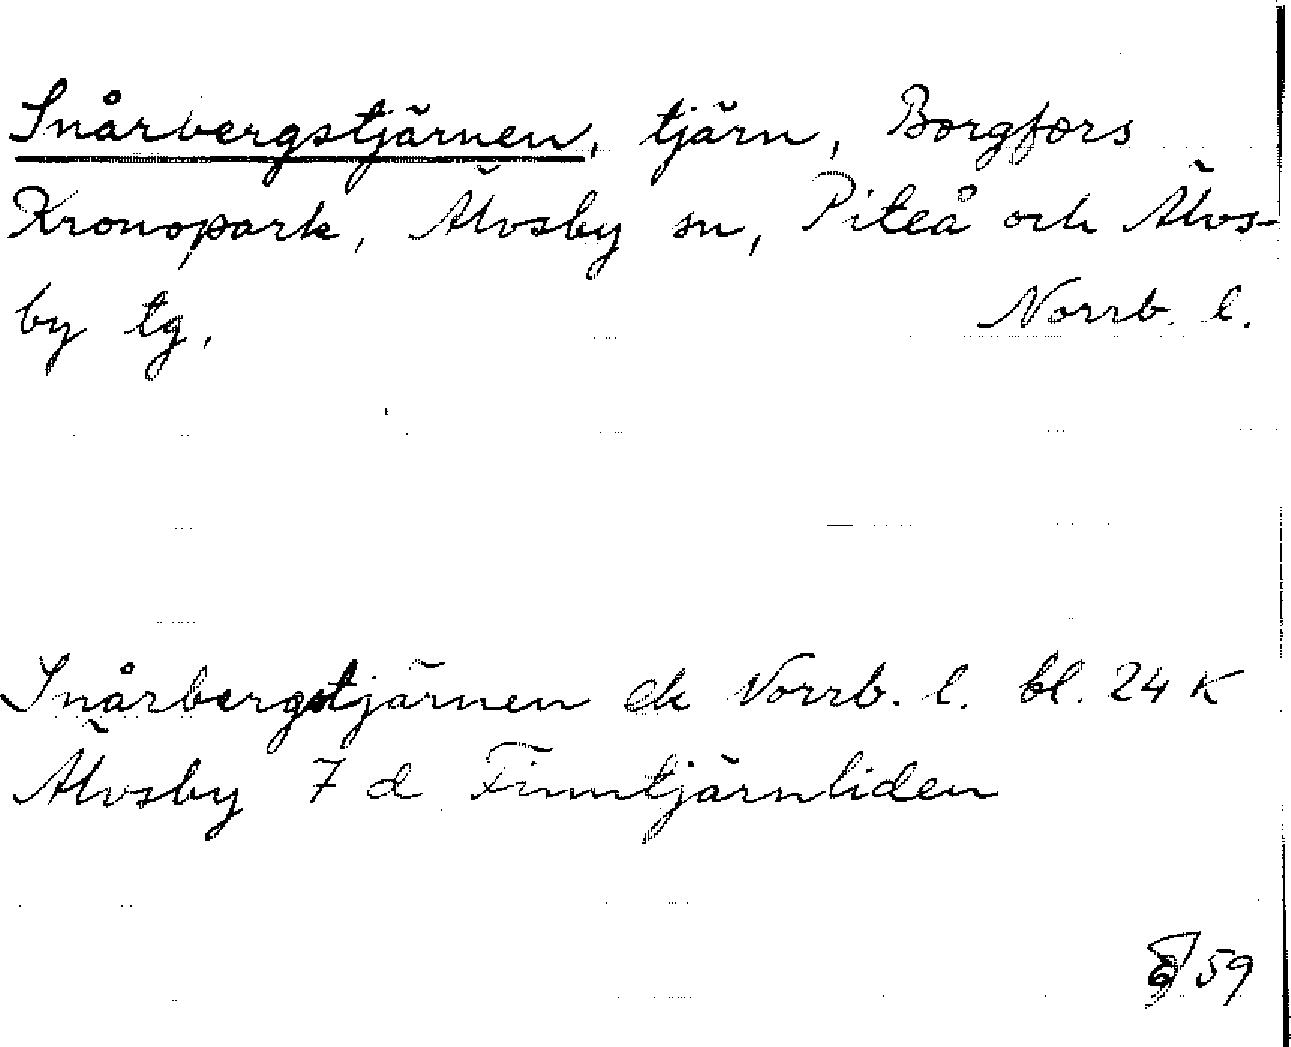 Snårbergstjärnen, tjärn, Borgfors
Kronopark, Älvsby sn, Piteå och Älvs-
by tg, Norrb. l.
Snårbergstjärnen ek Norrb. l. bl. 24 K
Älvsby 7 d Finntjärnliden
59